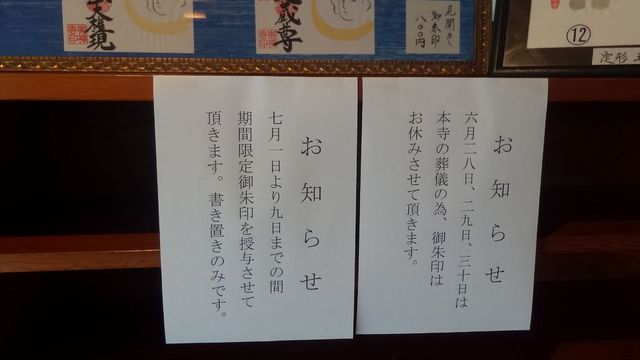 お知らせ
六月二八日、二九日、三十日は
本寺の葬儀の為、御朱印は
お休みさせて頂きます。
お知らせ
七月一日より九日までの間
期間限定御朱印を授与させて
頂きます。書き置きのみです。
見開き
御朱印
八〇〇円
蔵尊
権現
⑫
定形